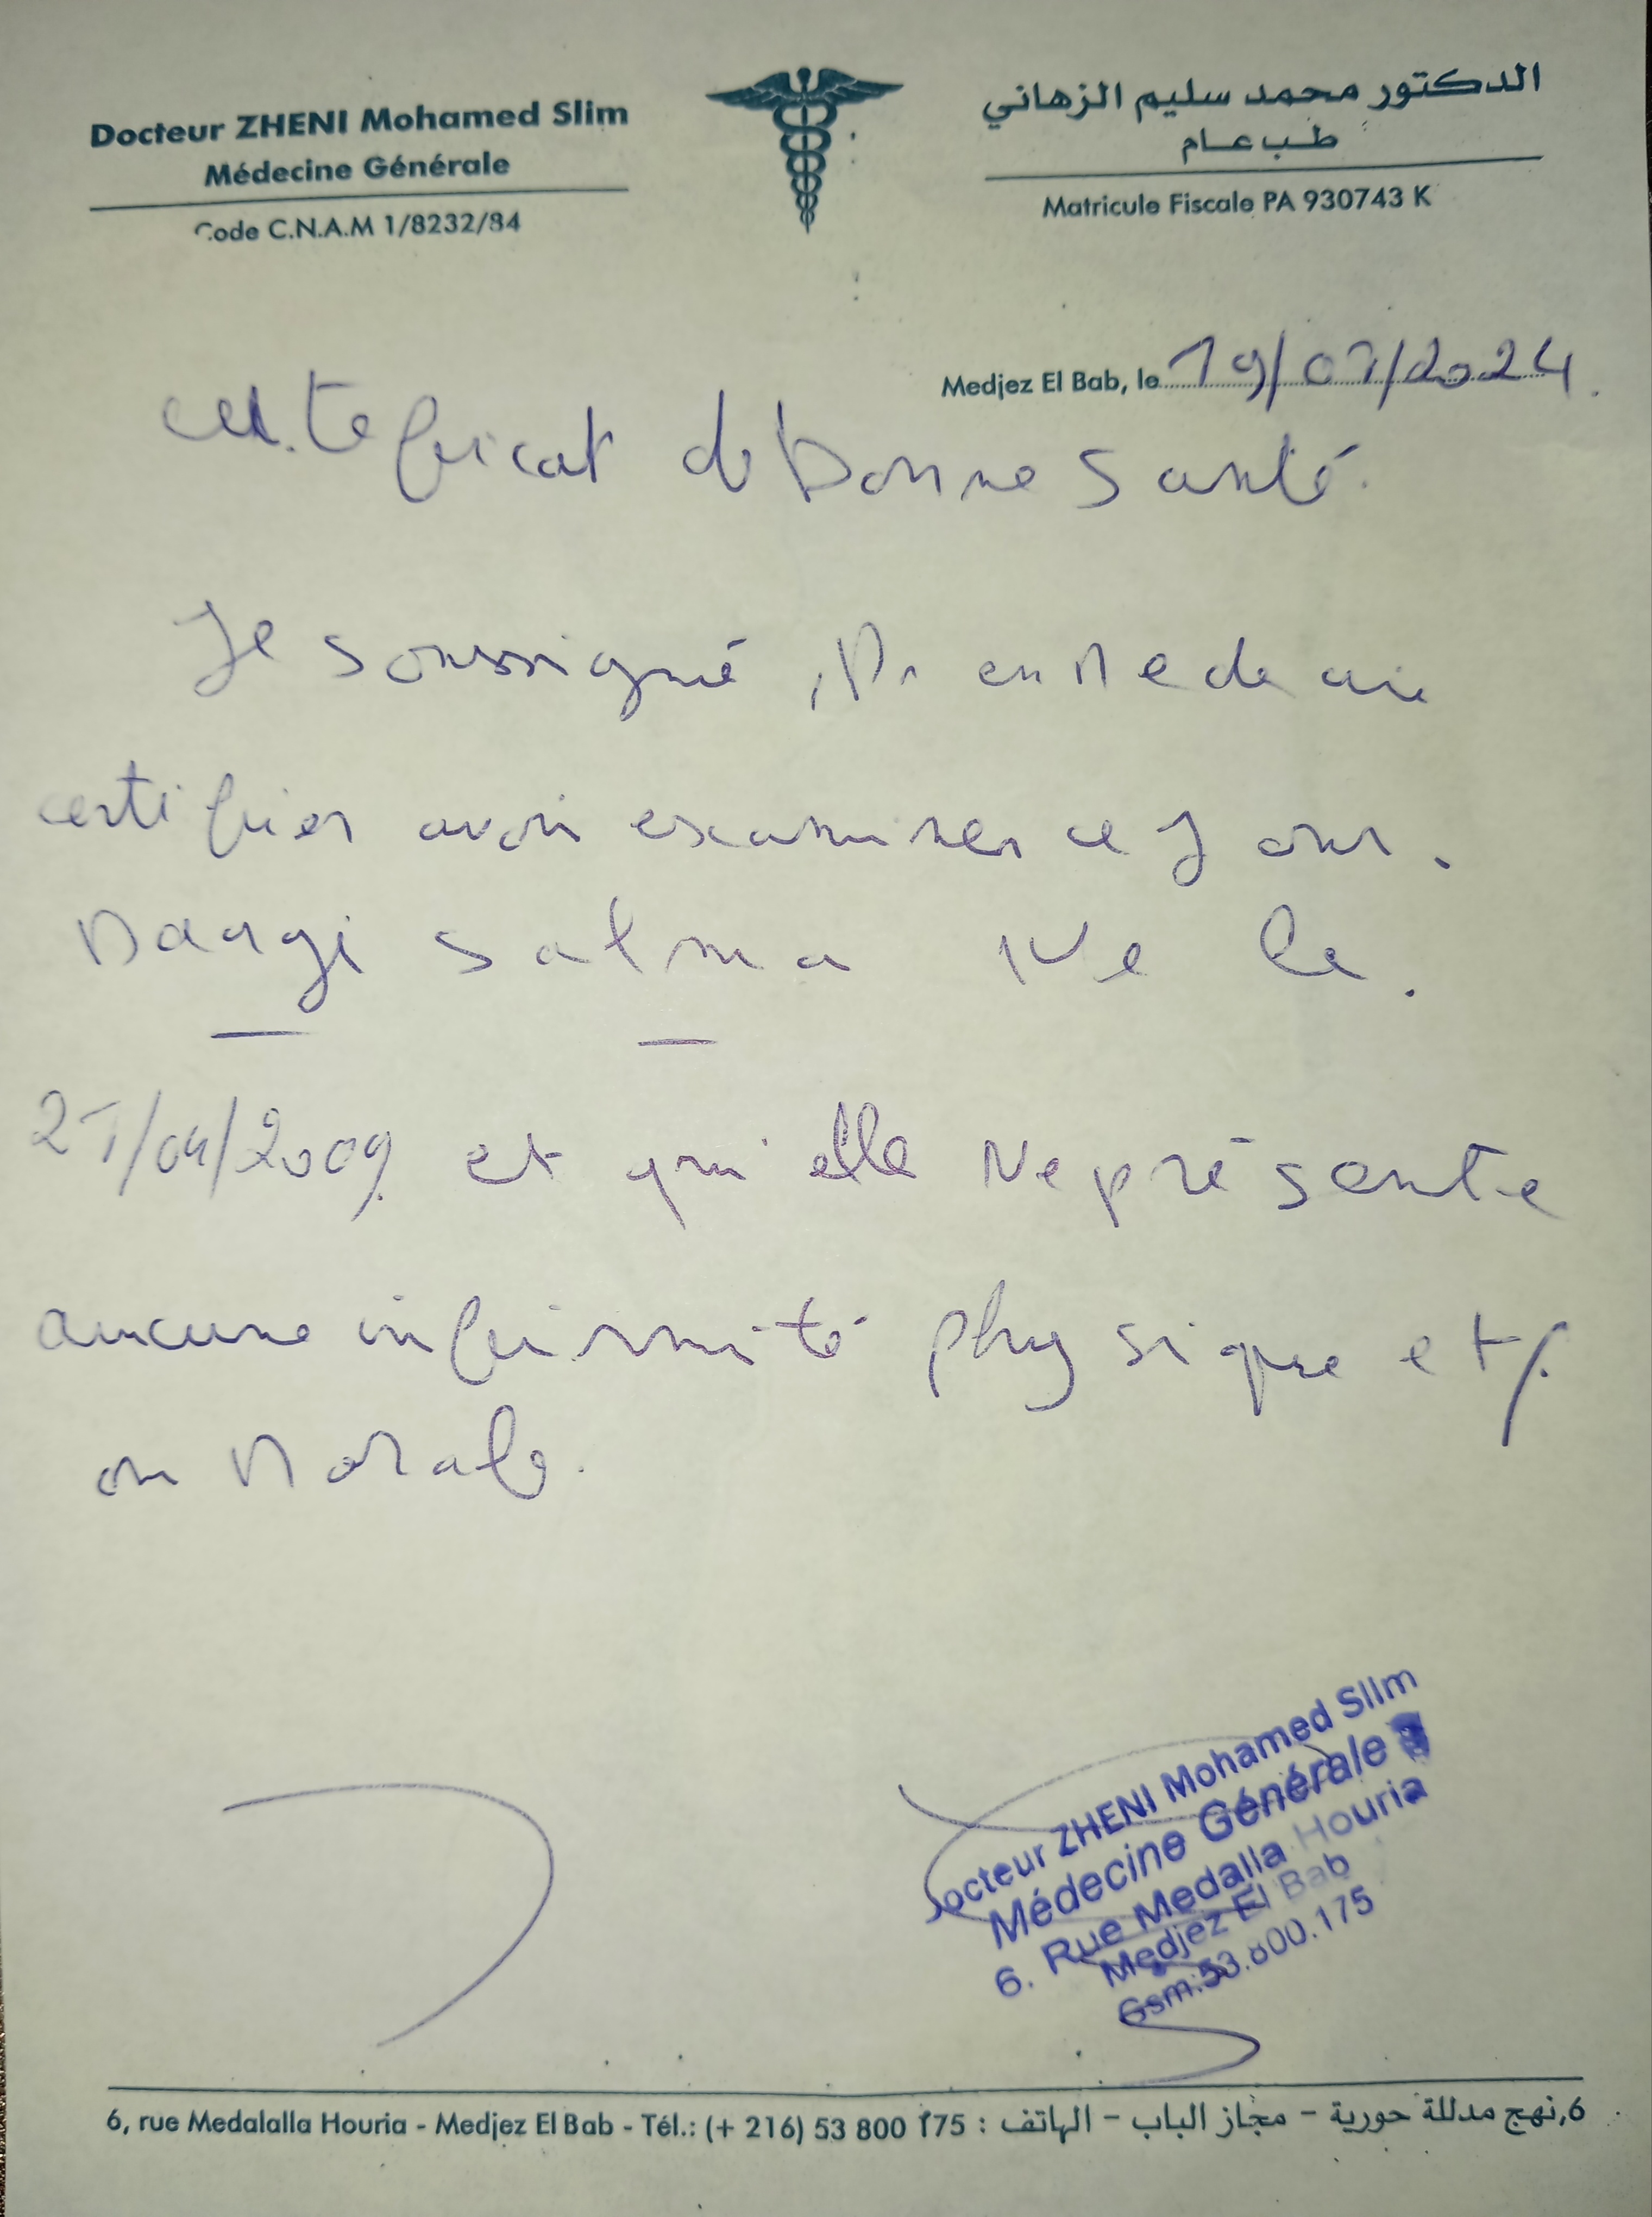 Docteur ZHENI Mohamed Slim
Médecine Générale
Code C.N.A.M 1/8232/84
الدكتور محمد سليم الزهاني
طب عام
Matricule Fiscale PA 930743 K
Medjez El Bab, le 19/07/2024
certificat de bonne santé.
Je soussigné, Dr en Medecine
certifier avoir examiner ce Jour.
salma Ne le.
/04/2009 et qu'elle Ne présente
aucune infirmité physique et/
ou Morale.
Docteur ZHENI Mohamed Slim
Médecine Générale
6. Rue Medalla Houria
Medjez El Bab
Gsm:53.800.175
6, rue Medalalla Houria - Medjez El Bab - Tél.: (+ 216) 53 800 175 : 6,نهج مدللة حورية – مجاز الباب – الهاتف